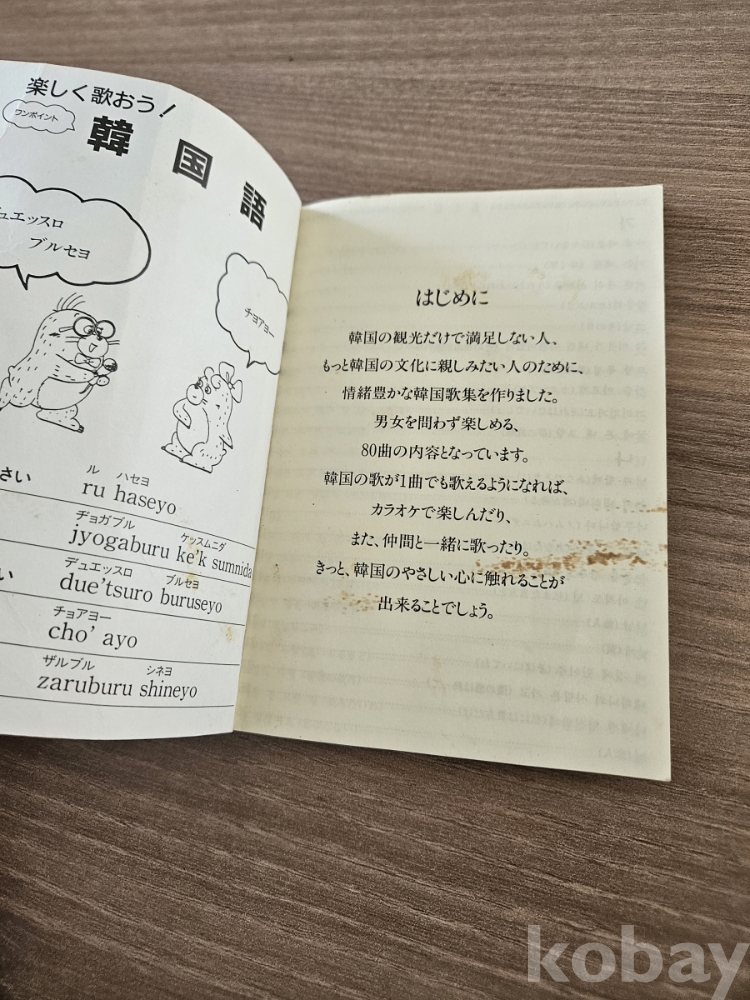 楽しく歌おう!
ワンポイント
韓国語
デュエッスロ
ブルセヨ
チョアヨー
さい
ル ハセヨ
ru haseyo
ヂョガブル ケッスムニダ
jyogaburu ke'k sumnida
い
デュエッスロ ブルセヨ
due'tsuro buruseyo
チョアヨー
cho' ayo
ザルブル シネヨ
zaruburu shineyo
はじめに
韓国の観光だけで満足しない人、
もっと韓国の文化に親しみたい人のために、
情緒豊かな韓国歌集を作りました。
男女を問わず楽しめる、
80曲の内容となっています。
韓国の歌が1曲でも歌えるようになれば、
カラオケで楽しんだり、
また、仲間と一緒に歌ったり。
きっと、韓国のやさしい心に触れることが
出来ることでしょう。
kobay